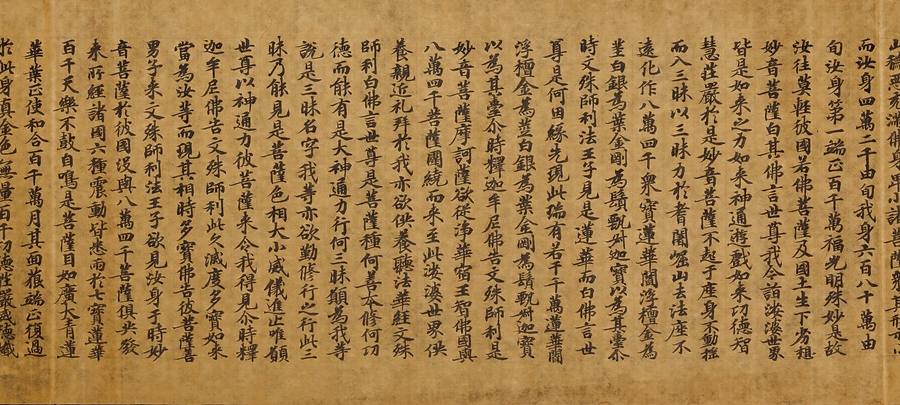 而汝身四萬二千由旬我身六百八十萬由
旬汝身第一端正百千萬福光明殊妙是故
汝往莫輕彼國若佛菩薩及國土生下劣想
妙音菩薩白其佛言世尊我今詣娑婆世界
皆是如來之力如來神通遊戲如來功德智
慧莊嚴於是妙音菩薩不起于座身不動搖
而入三昧以三昧力於耆闍崛山去法座不
遠化作八萬四千衆寶蓮華閻浮檀金為
莖白銀為葉金剛為鬚甄叔迦寶以為其臺尒
時文殊師利法王子見是蓮華而白佛言世
尊是何因緣先現此瑞有若干千萬蓮華閻
浮檀金為莖白銀為葉金剛為鬚甄叔迦寶
以為其臺尒時釋迦牟尼佛告文殊師利是
妙音菩薩摩訶薩欲從淨華宿王智佛國與
八萬四千菩薩圍繞而來至此娑婆世界供
養親近礼拜於我亦欲供養聽法華經文殊
師利白佛言世尊是菩薩種何善本修何功
德而能有是大神通力行何三昧願為我等
說是三昧名字我等亦欲勤修行之行此三
昧乃能見是菩薩色相大小威儀進止唯願
世尊以神通力彼菩薩來令我得見尒時釋
迦牟尼佛告文殊師利此久滅度多寶如來
當為汝等而現其相時多寶佛告彼菩薩善
男子來文殊師利法王子欲見汝身于時妙
音菩薩於彼國沒與八萬四千菩薩俱共發
來所經諸國六種震動皆悉雨於七寶蓮華
百千天樂不鼓自鳴是菩薩目如廣大青蓮
華葉正使和合百千萬月其面貌端正復過
於此身真金色無量百千功德莊嚴威德熾